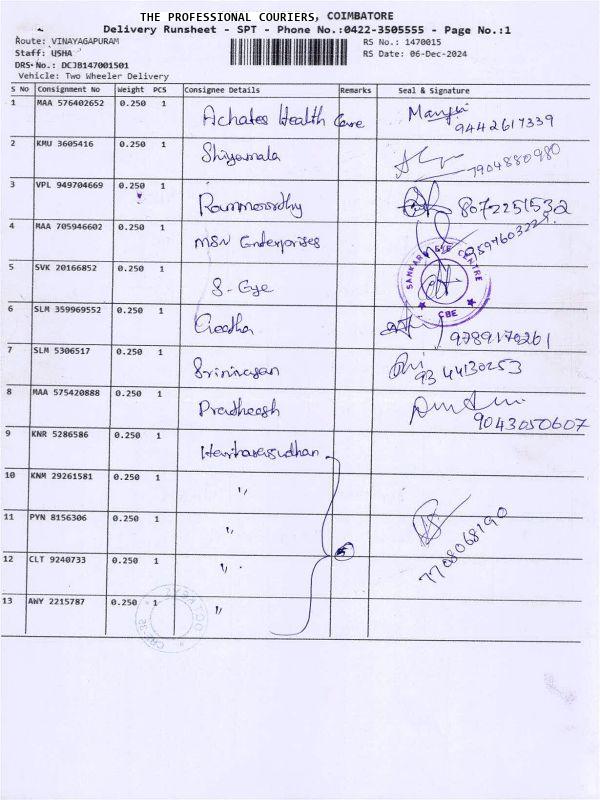 THE PROFESSIONAL COURIERS, COIMBATORE
Delivery Runsheet - SPT - Phone No.:0422-3505555 - Page No.:1
Route: VINAYAGAPURAM RS No.: 1470015
Staff: USHA RS Date: 06-Dec-2024
DRS No.: DCJB147001501
Vehicle: Two Wheeler Delivery
S No Consignment No Weight PCS Consignee Details Remarks Seal & Signature
1 MAA 576402652 0.250 1 Achates Health Care
9442617339
2 KMU 3605416 0.250 1 Shiyamala 7904880980
3 VPL 949704669 0.250 1 Rammoorthy 8072251532
4 MAA 705946602 0.250 1 MSN Enterprises
5 SVK 20166852 0.250 1 S-Eye SANKARA EYE CENTRE CBE
6 SLM 359969552 0.250 1 Geetha 9789170261
7 SLM 5306517 0.250 1 Srinivasan 9344130253
8 MAA 575420888 0.250 1 Pradheesh 9043050607
9 KNR 5286586 0.250 1 Hariharasudhan
10 KNM 29261581 0.250 1 "
11 PYN 8156306 0.250 1 " 7708068190
12 CLT 9240733 0.250 1 "
13 AWY 2215787 0.250 1 "